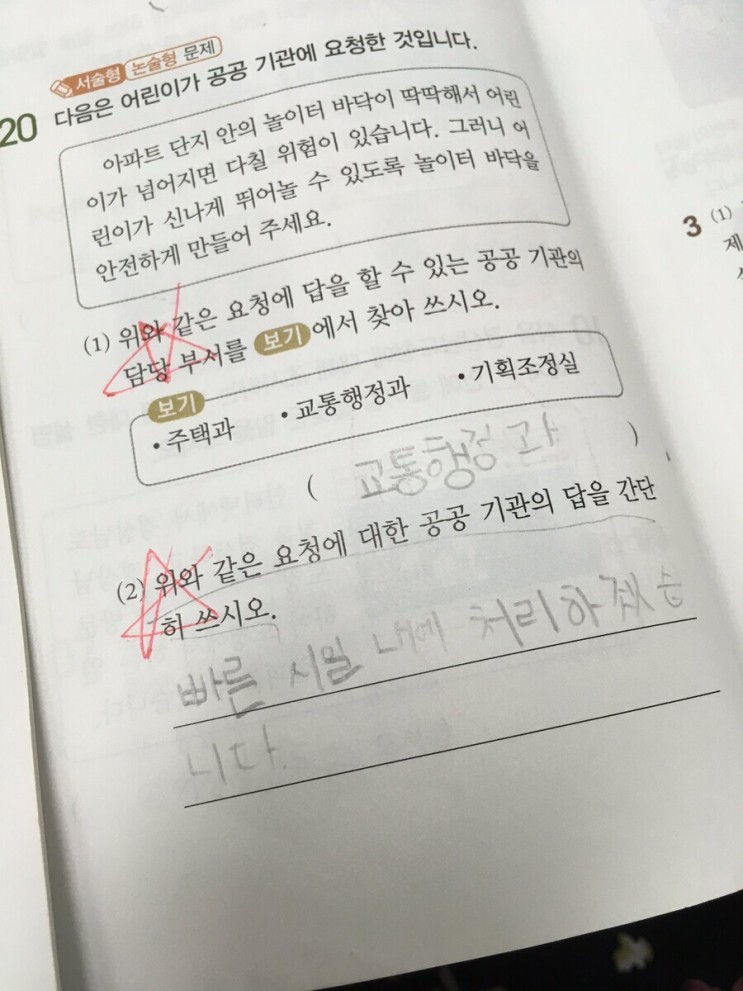 서술형 논술형 문제
20 다음은 어린이가 공공 기관에 요청한 것입니다.
아파트 단지 안의 놀이터 바닥이 딱딱해서 어린
이가 넘어지면 다칠 위험이 있습니다. 그러니 어
린이가 신나게 뛰어놀 수 있도록 놀이터 바닥을
안전하게 만들어 주세요.
(1) 위와 같은 요청에 답을 할 수 있는 공공 기관의
담당 부서를 보기에서 찾아 쓰시오.
보기
• 주택과 • 교통행정과 • 기획조정실
( 교통행정과 )
(2) 위와 같은 요청에 대한 공공 기관의 답을 간단
히 쓰시오.
빠른 시일 내에 처리하겠습
니다.
3 (1)
제